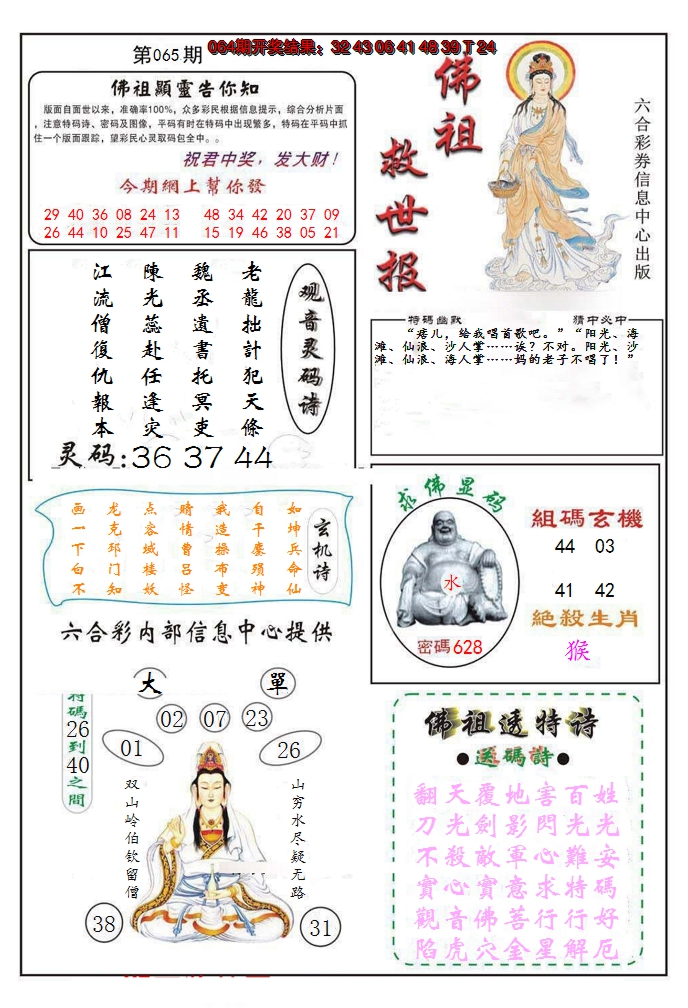 第065期
064期开奖结果：32 43 06 41 48 39 T 24
佛祖顯靈告你知
版面自面世以来，准确率100%，众多彩民根据信息提示，综合分析片面
，注意特码诗、密码及图像，平码有时在特码中出现繁多，特码在平码中抓
住一个版面跟踪，望彩民心灵取码包全中。。
祝君中奖，发大财！
今期網上幫你發
29 40 36 08 24 13 48 34 42 20 37 09
26 44 10 25 47 11 15 19 46 38 05 21
佛祖
救世报
六合彩券信息中心出版
观音灵码诗
老龍拙計犯天條
魏丞遺書托冥吏
陳光蕊赴任逢灾
江流僧復仇報本
灵码:36 37 44
特碼幽默 猜中必中
“痞儿，给我唱首歌吧。”“阳光、海
滩、仙浪、沙人掌……诶？不对。阳光、沙
滩、仙浪、海人掌……妈的老子不唱了！”
玄机诗
如坤兵命仙
自干麋殒神
我造操布变
睛情曹吕怪
点容城楼妖
龙克邳门知
画一下白不
六合彩内部信息中心提供
求佛显码
水
密碼628
組碼玄機
44 03
41 42
絕殺生肖
猴
大 單
特碼26到40之間
02 07 23
01 26
双山岭伯钦留僧
山穷水尽疑无路
38 31
佛祖透特诗
●送碼詩●
翻天覆地害百姓
刀光劍影閃光光
不殺敵軍心難安
實心實意求特碼
觀音佛菩行行好
陷虎穴金星解厄